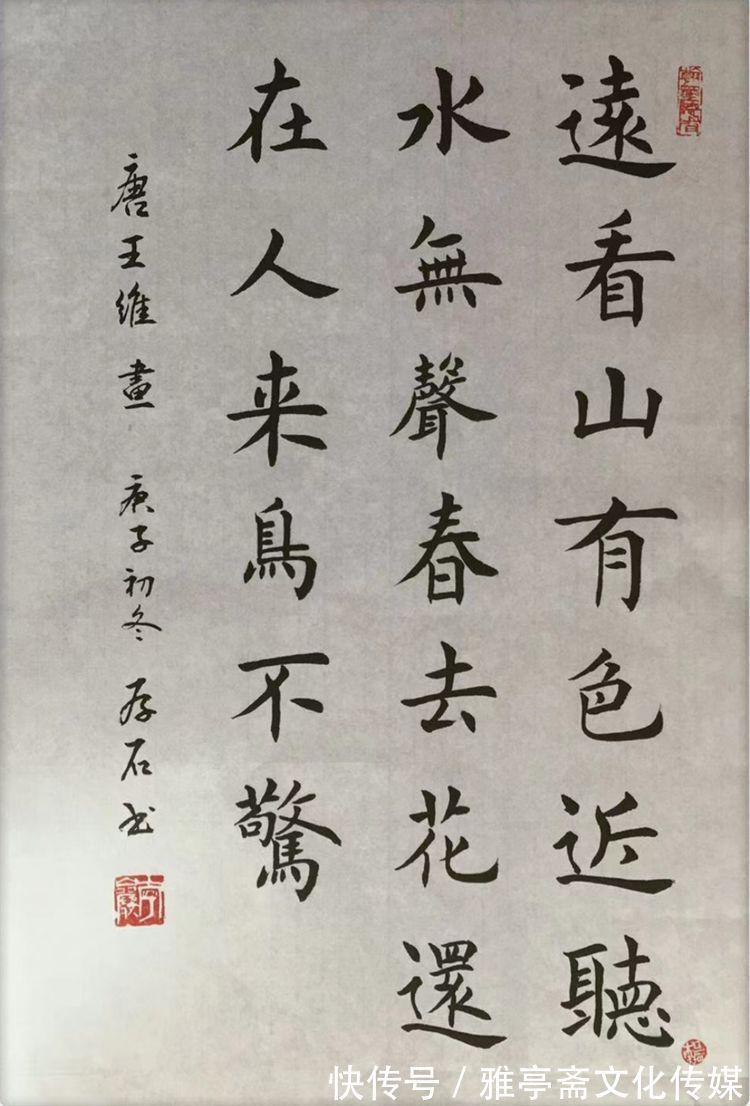 遠看山有色近聽
水無聲春去花還
在人来鳥不驚
唐王維畫 庚子初冬 存石书
快传号 / 雅亭斋文化传媒